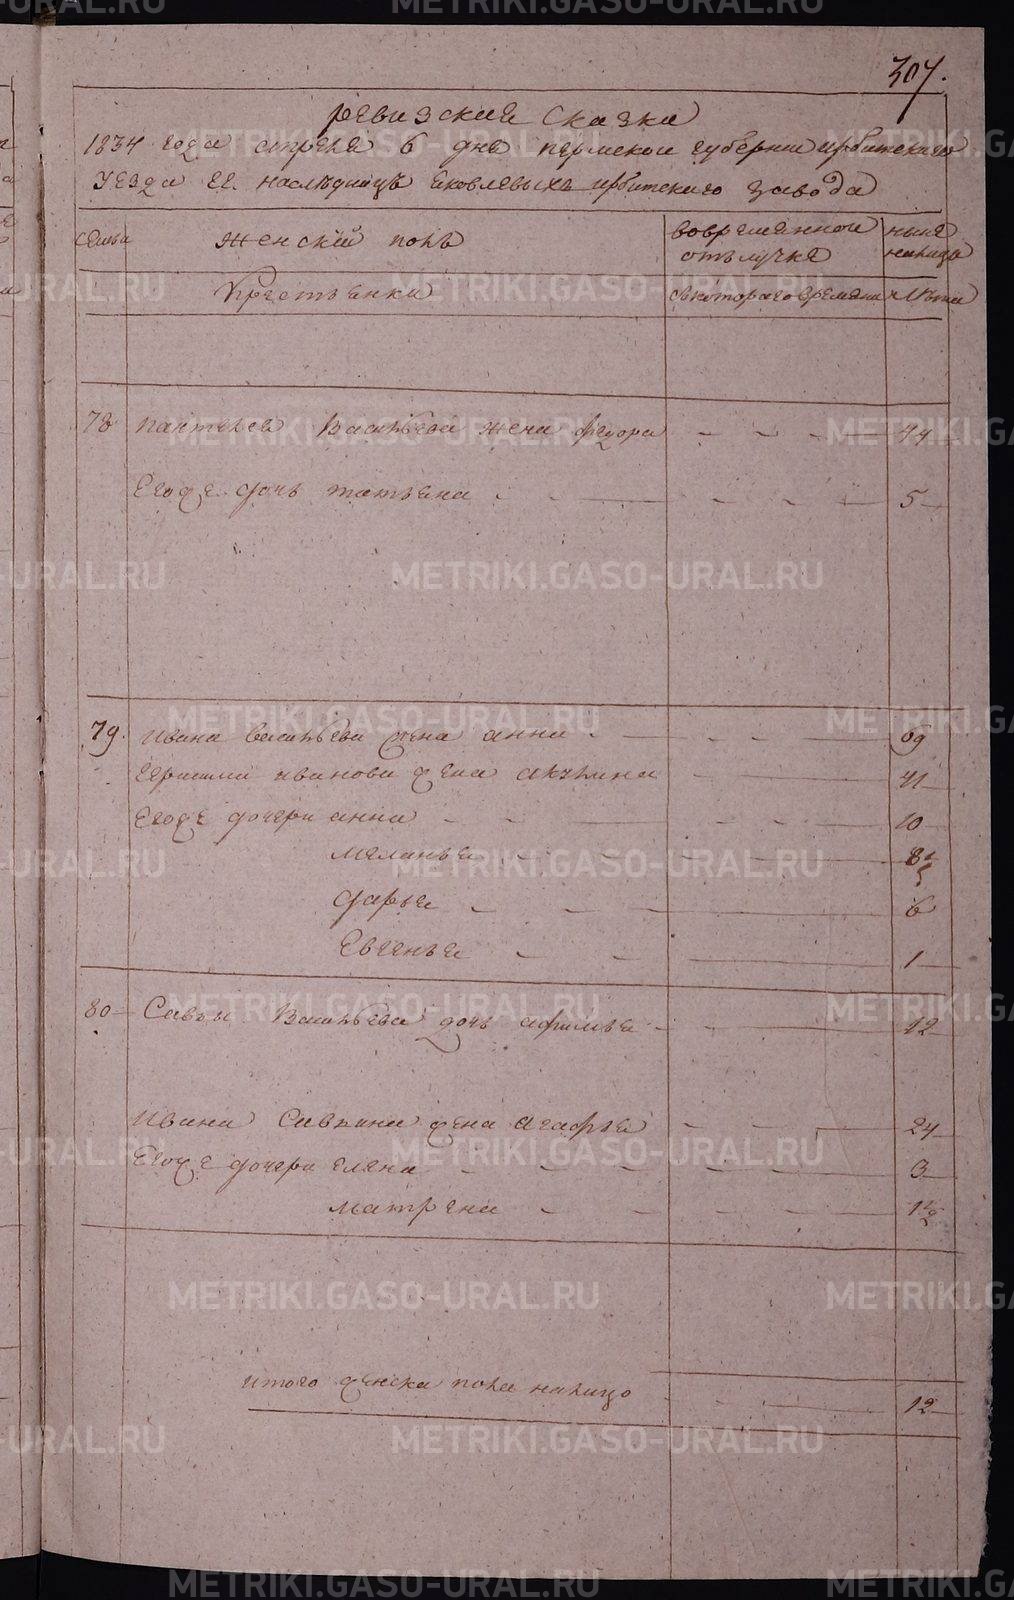 307.
ревизские сказки
1834 года апреля 6 дня пермской губернии ирбитского
уезда гг. наследницъ яковлевыхъ ирбитского завода
семьи женскій полъ вовременной отълучке ныне налицо
крестьянки скоторого времени лъта
78 пантелея Васильева жена федора 44
Егоже дочь татьяна 5
79. ивана васильева жена анна 69
герасима иванова жена акулина 41
Егоже дочери анна 10
меланья 8
дарья 6
Евгенья 1
80 Савы Васильева дочь афимья 12
ивана Савина жена агафья 24
Егоже дочери елена 3
матрена 1½
итого женска пола налицо 12
METRIKI.GASO-URAL.RU